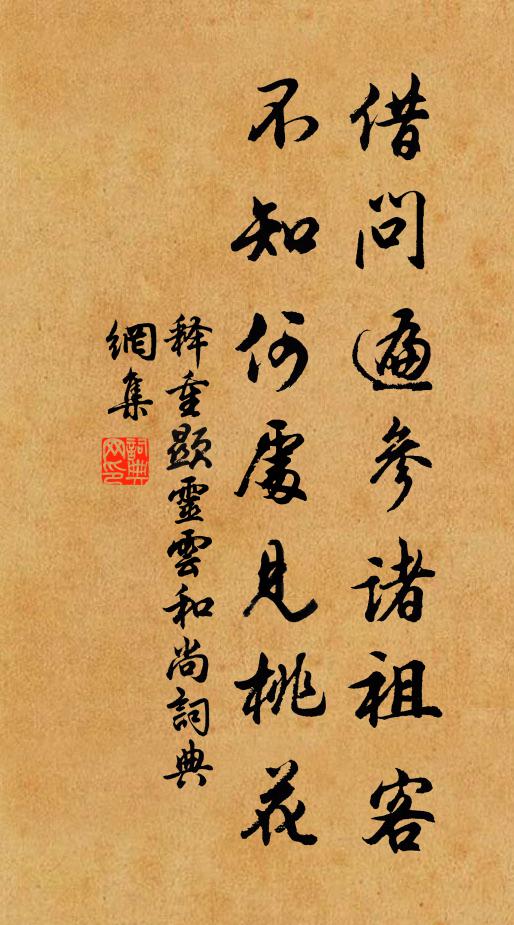 借問遍參諸祖客
不知何處見桃花
释重顯靈雲和尚詞典
網集
詞典網印